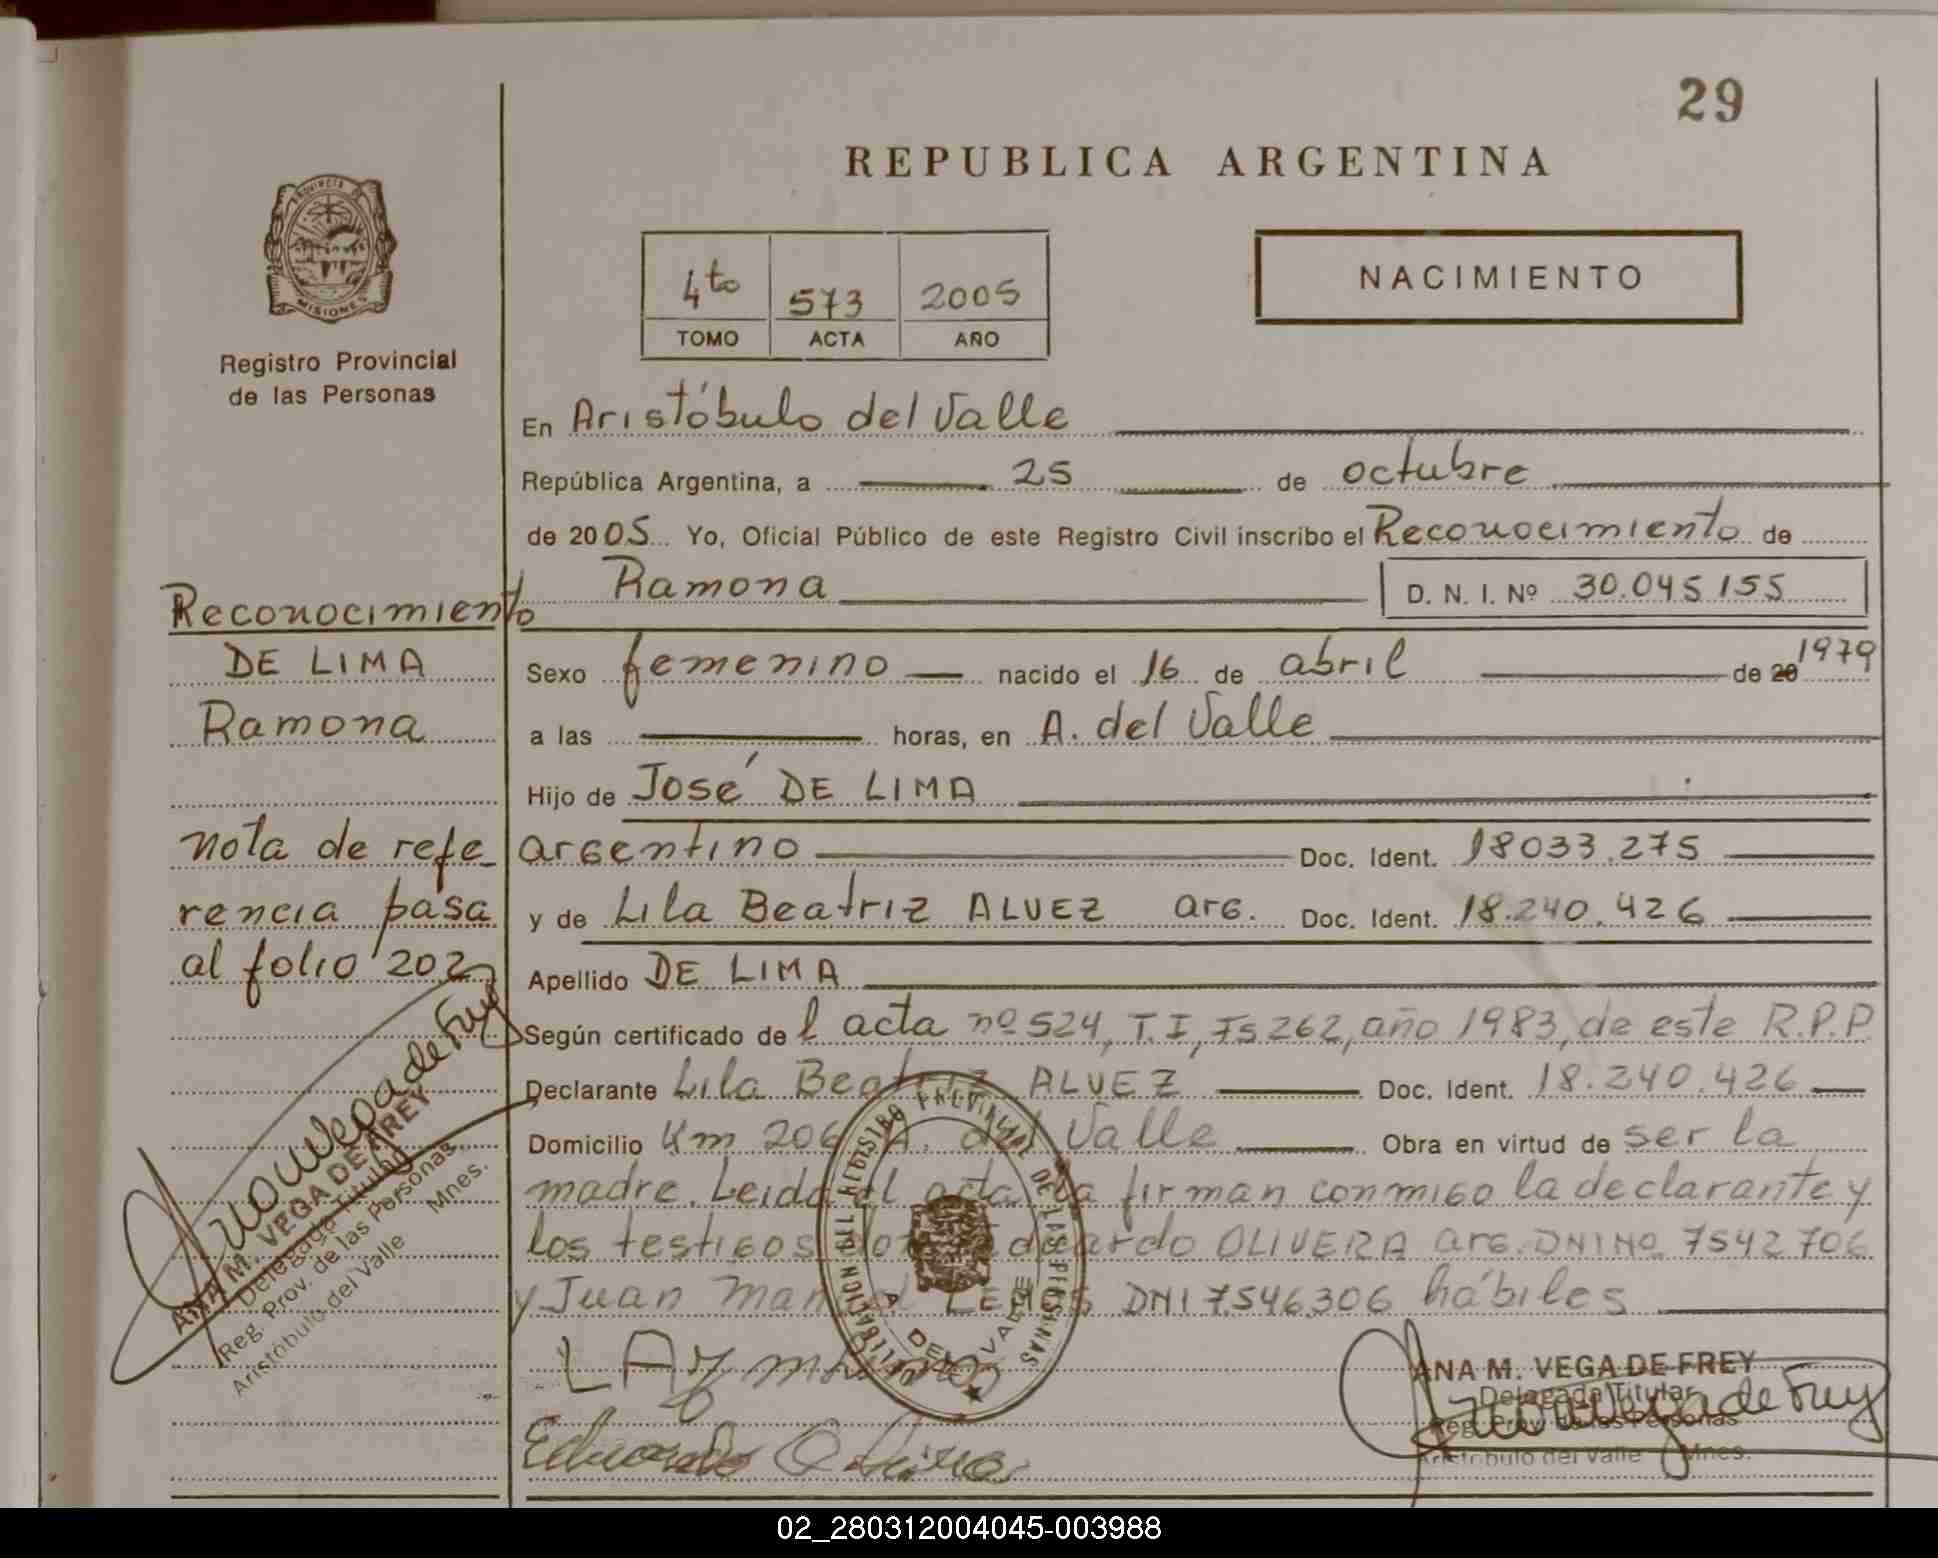 29
REPUBLICA ARGENTINA
PROVINCIA DE
MISIONES
Registro Provincial
de las Personas
4to 573 2005
TOMO ACTA AÑO
NACIMIENTO
En Aristóbulo del Valle
República Argentina, a 25 de octubre
de 2005 Yo, Oficial Público de este Registro Civil inscribo el Reconocimiento de
Ramona D. N. I. Nº 30.045.155
Reconocimiento
DE LIMA
Ramona
Sexo femenino nacido el 16 de abril de 20 1979
a las horas, en A. del Valle
Hijo de José DE LIMA
argentino Doc. Ident. 18033.275
y de Lila Beatriz ALVEZ arg. Doc. Ident. 18.240.426
Apellido DE LIMA
nota de refe
rencia pasa
al folio 202
Según certificado de l acta nº 524, T.I, Fs 262, año 1983, de este R.P.P
Declarante Lila Beatriz ALVEZ Doc. Ident. 18.240.426
Domicilio Km 206 A. del Valle Obra en virtud de ser la
madre. Leida el acta la firman conmigo la declarante y
los testigos Eduardo OLIVERA arg. DNI Nº 7542706
y Juan Manuel LEMOS DNI 7.546.306 hábiles
DELEGACION DEL REGISTRO PROVINCIAL DE LAS PERSONAS
A. DEL VALLE
Ana Vega de Frey
ANA M. VEGA DE FREY
Delegada Titular
Reg. Prov. de las Personas
Aristóbulo del Valle Mnes.
Eduardo Olivera
ANA M. VEGA DE FREY
Delegada Titular
Reg. Prov. de las Personas
Aristóbulo del Valle Mnes.
Ana Vega de Frey
02_280312004045-003988